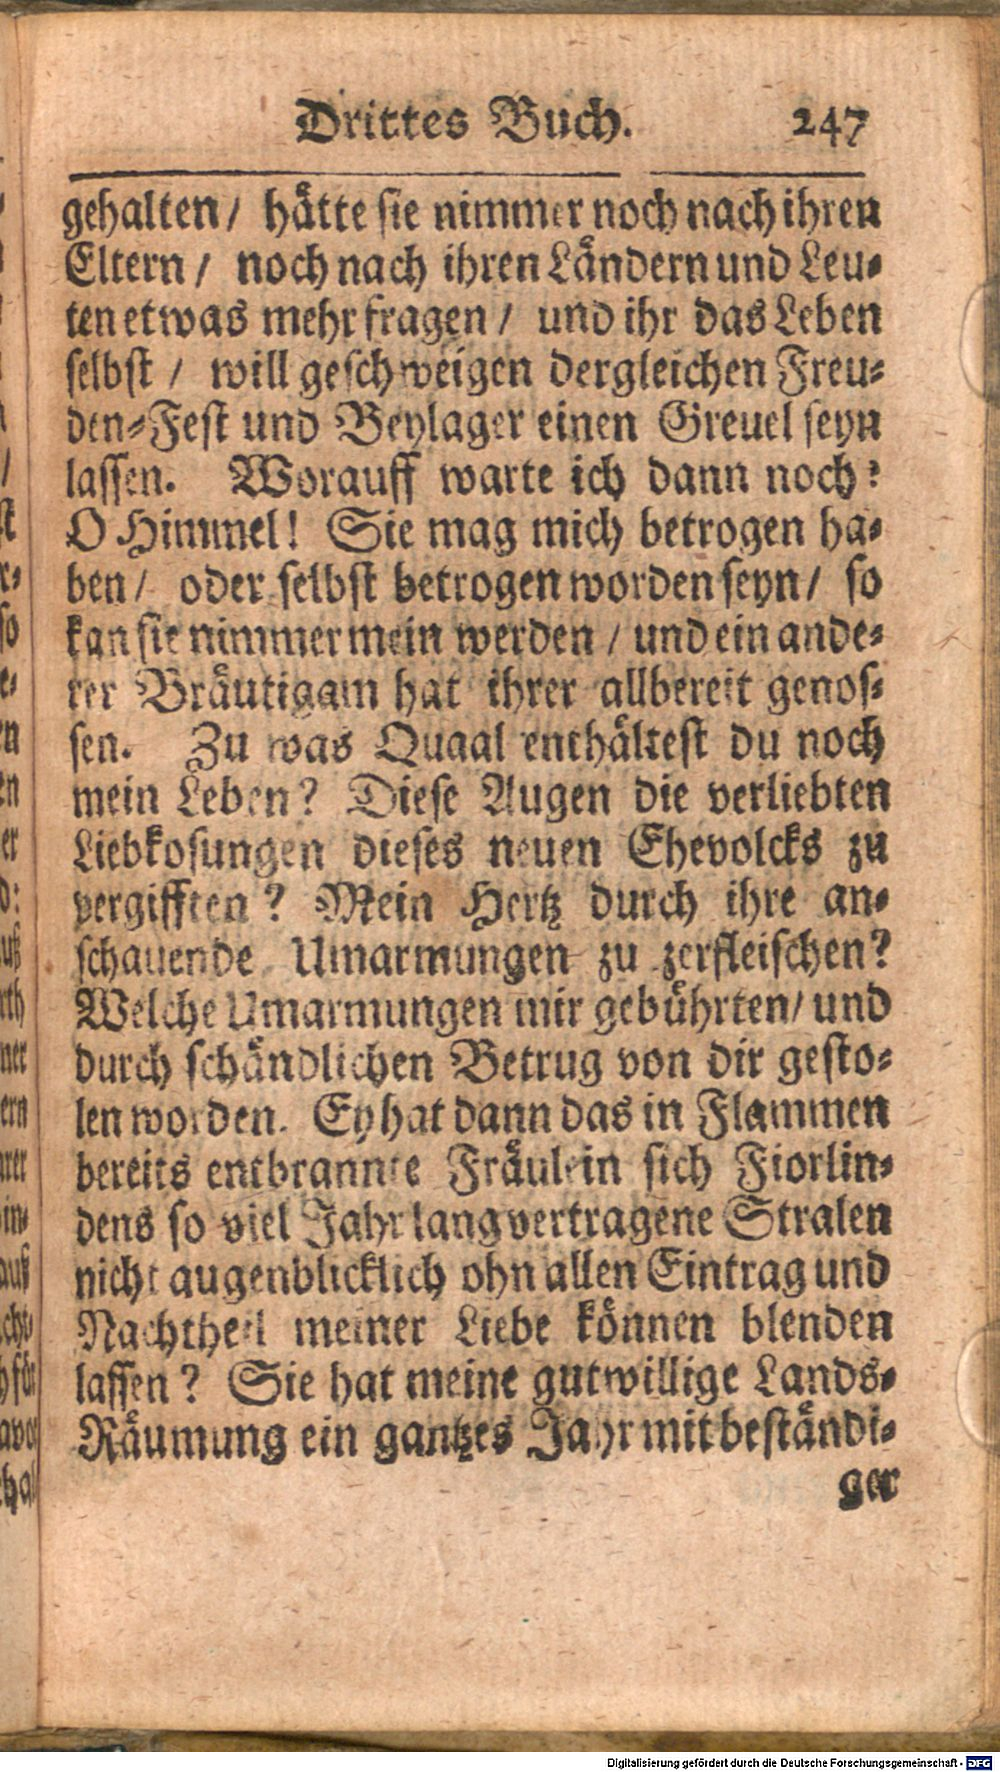 Drittes Buch. 247
gehalten / hätte sie nimmer noch nach ihren
Eltern / noch nach ihren Ländern und Leu-
ten etwas mehr fragen / und ihr das Leben
selbst / will geschweigen dergleichen Freu-
den-Fest und Beylager einen Greuel seyn
lassen. Worauff warte ich dann noch?
O Himmel! Sie mag mich betrogen ha-
ben / oder selbst betrogen worden seyn / so
kan sie nimmer mein werden / und ein ande-
rer Bräutigam hat ihrer allbereit genos-
sen. Zu was Quaal enthältest du noch
mein Leben? Diese Augen die verliebten
Liebkosungen dieses neuen Ehevolcks zu
vergifften? Mein Hertz durch ihre an-
schauende Umarmungen zu zerfleischen?
Welche Umarmungen mir gebührten / und
durch schändlichen Betrug von dir gesto-
len worden. Ey hat dann das in Flammen
bereits entbrannte Fräulein sich Fiorlin-
dens so viel Jahr lang vertragene Stralen
nicht augenblicklich ohn allen Eintrag und
Nachtheil meiner Liebe können blenden
lassen? Sie hat meine gutwillige Lands-
Räumung ein gantzes Jahr mit beständi-
ger
Digitalisierung gefördert durch die Deutsche Forschungsgemeinschaft - DFG